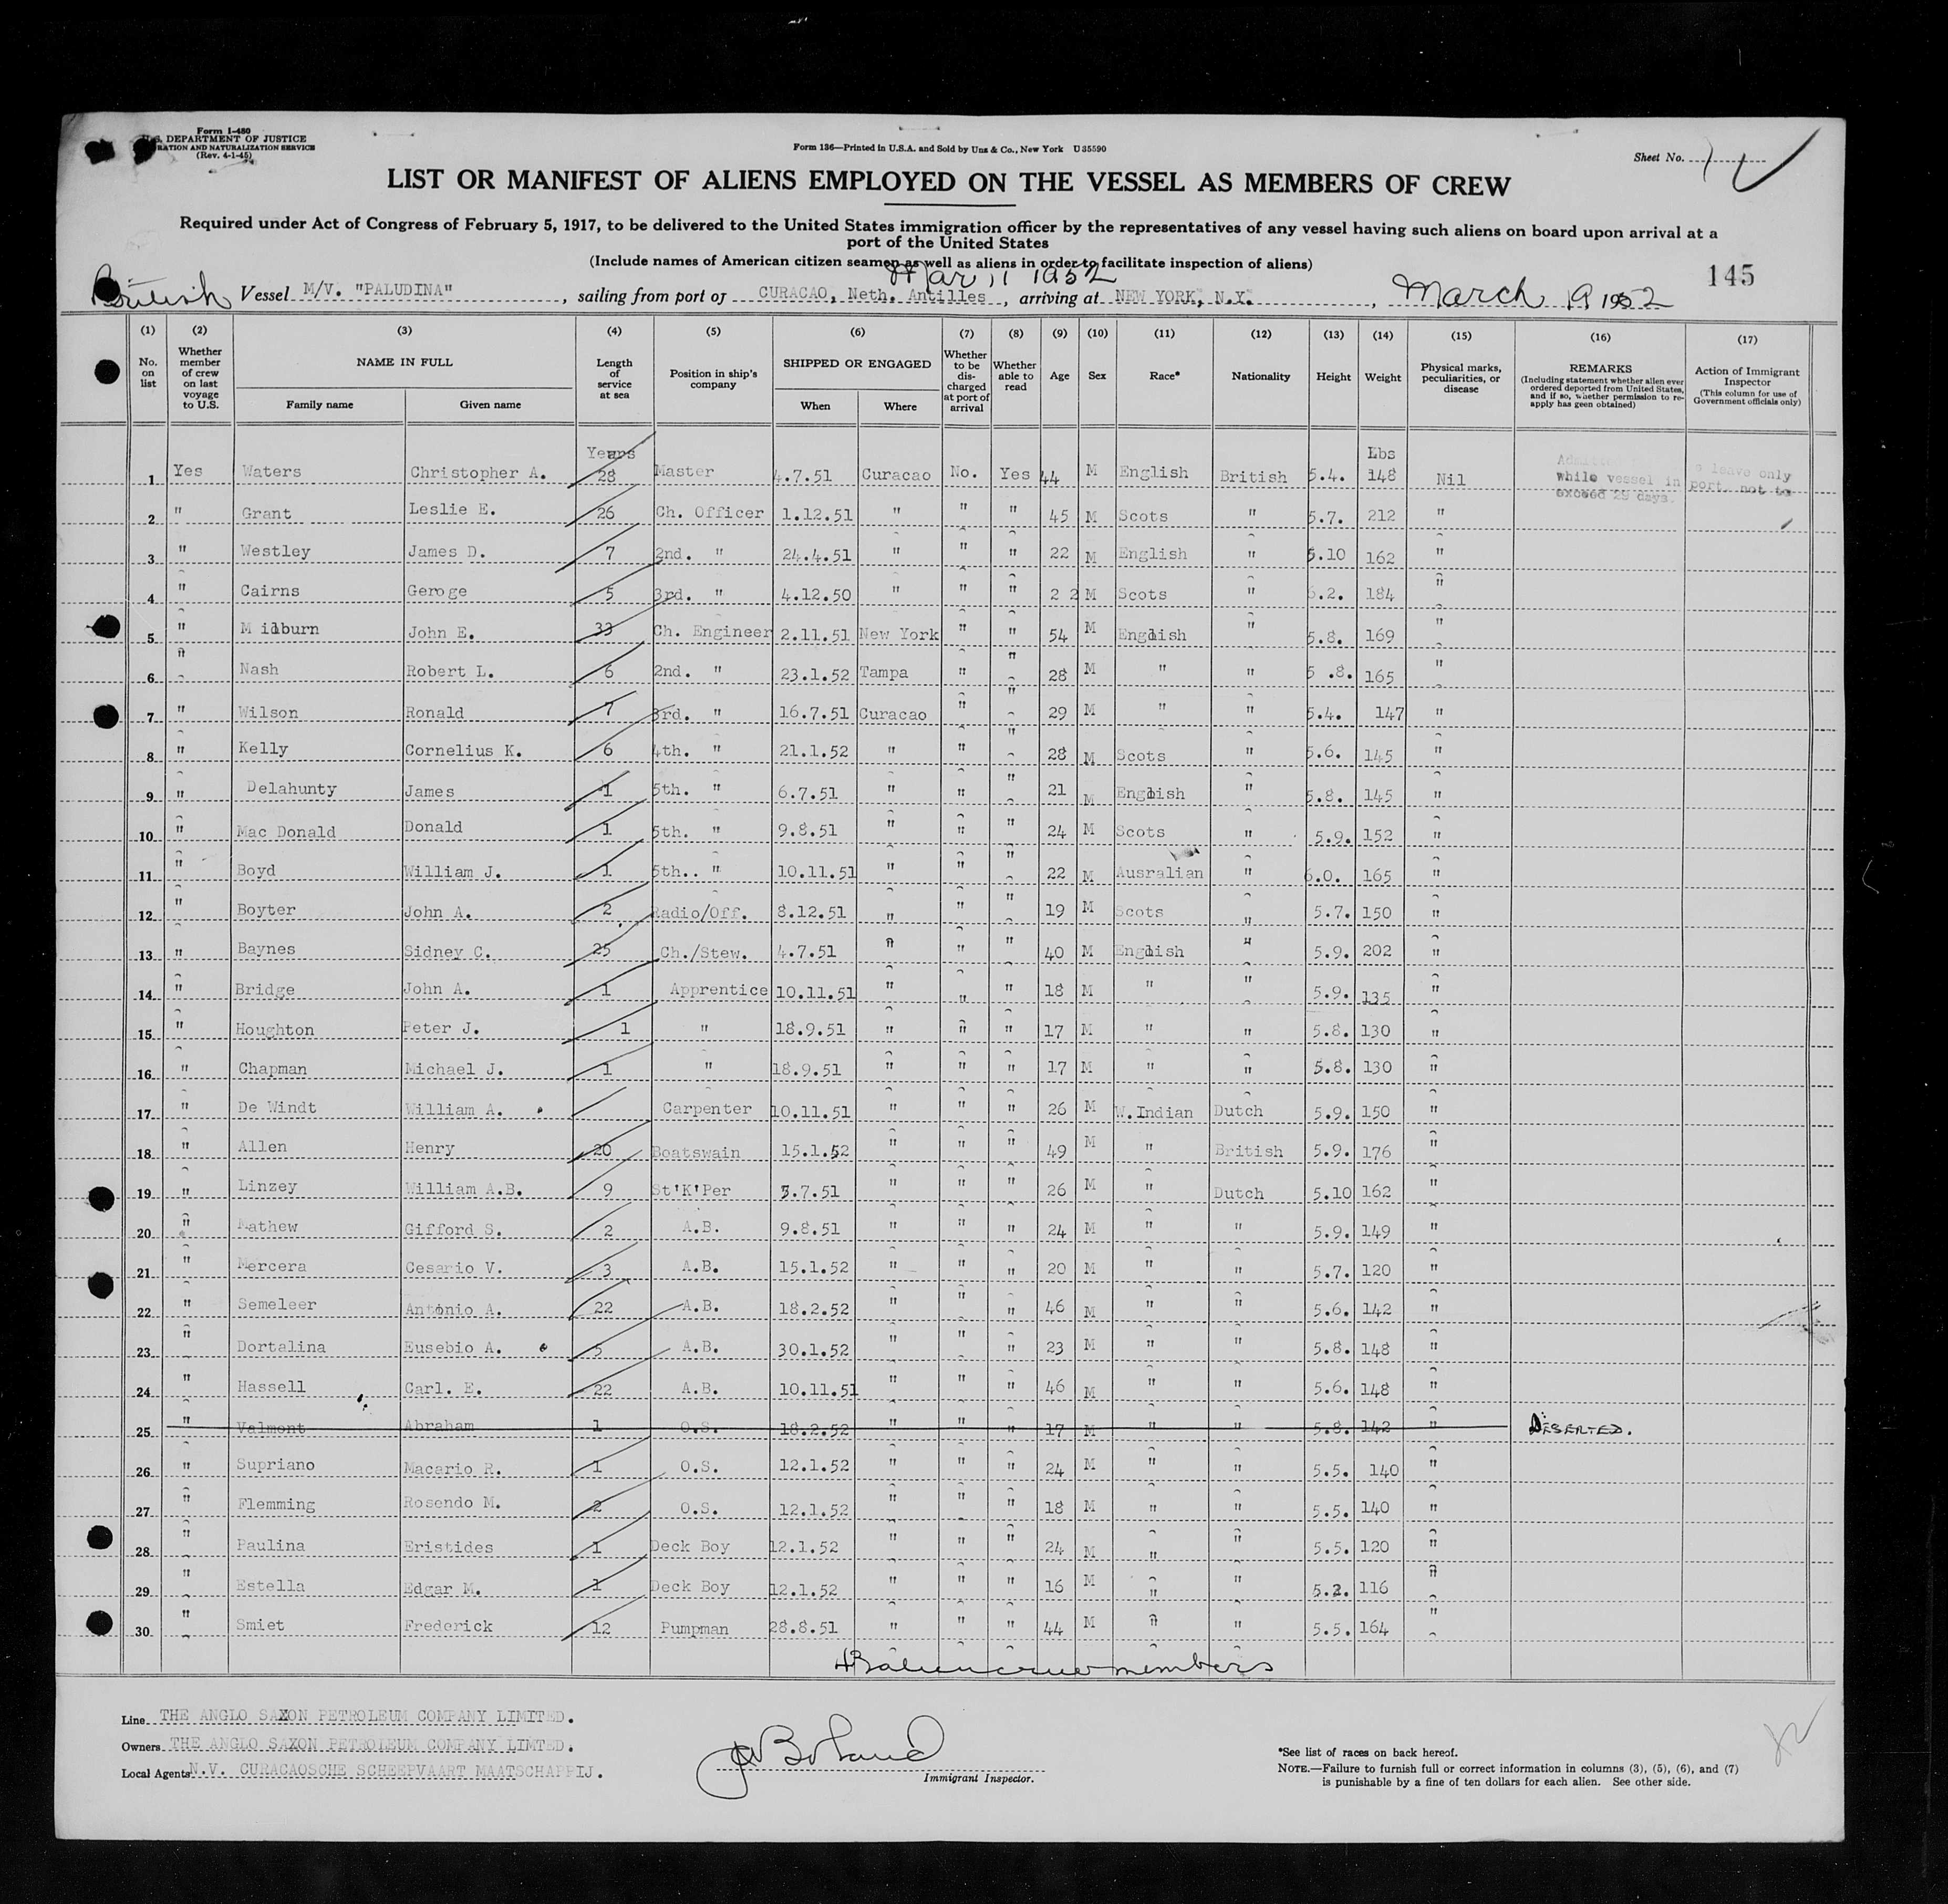 Form I-480
U.S. DEPARTMENT OF JUSTICE
RATION AND NATURALIZATION SERVICE
(Rev. 4-1-45)
Form 136—Printed in U.S.A. and Sold by Unz & Co., New York U 35590
Sheet No. 1
LIST OR MANIFEST OF ALIENS EMPLOYED ON THE VESSEL AS MEMBERS OF CREW
Required under Act of Congress of February 5, 1917, to be delivered to the United States immigration officer by the representatives of any vessel having such aliens on board upon arrival at a
port of the United States
(Include names of American citizen seamen as well as aliens in order to facilitate inspection of aliens)
Mar 11 1952
145
British Vessel M/V. "PALUDINA", sailing from port of CURACAO, Neth. Antilles, arriving at NEW YORK, N.Y., March 9 1952
(1) (2) (3) (4) (5) (6) (7) (8) (9) (10) (11) (12) (13) (14) (15) (16) (17)
No. on list
Whether member of crew on last voyage to U.S.
NAME IN FULL
Family name Given name
Length of service at sea
Position in ship's company
SHIPPED OR ENGAGED
When Where
Whether to be discharged at port of arrival
Whether able to read
Age
Sex
Race*
Nationality
Height
Weight
Physical marks, peculiarities, or disease
REMARKS
(Including statement whether alien ever ordered deported from United States, and if so, whether permission to re-apply has geen obtained)
Action of Immigrant Inspector
(This column for use of Government officials only)
Years Lbs
1 Yes Waters Christopher A. 28 Master 4.7.51 Curacao No. Yes 44 M English British 5.4. 148 Nil
leave only
while vessel in port, not to
exceed 29 days.
2 " Grant Leslie E. 26 Ch. Officer 1.12.51 " " " 45 M Scots " 5.7. 212 "
3 " Westley James D. 7 2nd. " 24.4.51 " " " 22 M English " 5.10 162 "
4 " Cairns Geroge 5 3rd. " 4.12.50 " " " 2 2 M Scots " .2. 184 "
5 " Milburn John E. 33 Ch. Engineer 2.11.51 New York " " 54 M English " 5.8. 169 "
6 " Nash Robert L. 6 2nd. " 23.1.52 Tampa " " 28 M " " 5 .8. 165 "
7 " Wilson Ronald 7 3rd. " 16.7.51 Curacao " " 29 M " " 5.4. 147 "
8 " Kelly Cornelius K. 6 4th. " 21.1.52 " " " 28 M Scots " 5.6. 145 "
9 " Delahunty James 1 5th. " 6.7.51 " " " 21 M English " 5.8. 145 "
10 " Mac Donald Donald 1 5th. " 9.8.51 " " " 24 M Scots " 5.9. 152 "
11 " Boyd William J. 1 5th.. " 10.11.51 " " " 22 M Ausralian " 6.0. 165 "
12 " Boyter John A. 2 Radio/Off. 8.12.51 " " " 19 M Scots " 5.7. 150 "
13 " Baynes Sidney C. 25 Ch./Stew. 4.7.51 " " " 40 M English " 5.9. 202 "
14 " Bridge John A. 1 Apprentice 10.11.51 " " " 18 M " " 5.9. 135 "
15 " Houghton Peter J. 1 " 18.9.51 " " " 17 M " " 5.8. 130 "
16 " Chapman Michael J. 1 " 18.9.51 " " " 17 M " " 5.8. 130 "
17 " De Windt William A. Carpenter 10.11.51 " " " 26 M W.Indian Dutch 5.9. 150 "
18 " Allen Henry 20 Boatswain 15.1.52 " " " 49 M " British 5.9. 176 "
19 " Linzey William A.B. 9 St'K'Per 3.7.51 " " " 26 M " Dutch 5.10 162 "
20 " Mathew Gifford S. 2 A.B. 9.8.51 " " " 24 M " " 5.9. 149 "
21 " Mercera Cesario V. 3 A.B. 15.1.52 " " " 20 M " " 5.7. 120 "
22 " Semeleer Antonio A. 22 A.B. 18.2.52 " " " 46 M " " 5.6. 142 "
23 " Dortalina Eusebio A. 5 A.B. 30.1.52 " " " 23 M " " 5.8. 148 "
24 " Hassell Carl. E. 22 A.B. 10.11.51 " " " 46 M " " 5.6. 148 "
25 " Valmont Abraham 1 O.S. 18.2.52 " " " 17 M " " 5.8. 142 " DESERTED.
26 " Supriano Macario R. 1 O.S. 12.1.52 " " " 24 M " " 5.5. 140 "
27 " Flemming Rosendo M. 2 O.S. 12.1.52 " " " 18 M " " 5.5. 140 "
28 " Paulina Eristides 1 Deck Boy 12.1.52 " " " 24 M " " 5.5. 120 "
29 " Estella Edgar M. 1 Deck Boy 12.1.52 " " " 16 M " " 5.2. 116 "
30 " Smiet Frederick 12 Pumpman 28.8.51 " " " 44 M " " 5.5. 164 "
alien crew members
Line THE ANGLO SAXON PETROLEUM COMPANY LIMITED.
Owners THE ANGLO SAXON PETROLEUM COMPANY LIMTED.
Local Agents N.V. CURACAOSCHE SCHEEPVAART MAATSCHAPPIJ.
Immigrant Inspector.
*See list of races on back hereof.
NOTE.—Failure to furnish full or correct information in columns (3), (5), (6), and (7)
is punishable by a fine of ten dollars for each alien. See other side.